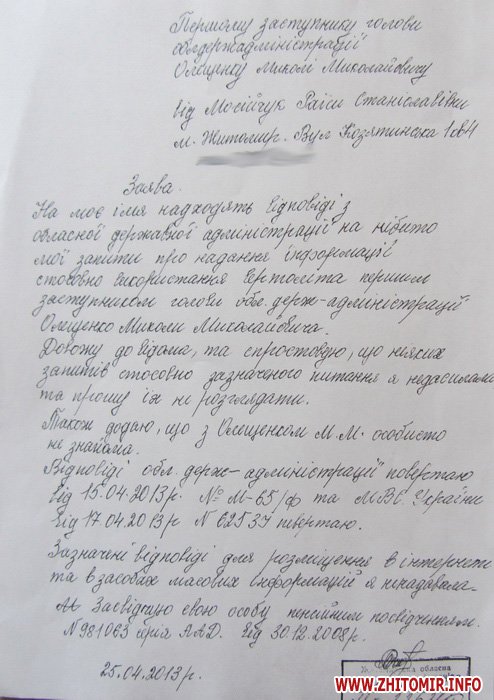 Першому заступнику голови
облдержадміністрації
Олещенку Миколі Миколайовичу
від Мосійчук Раїси Станіславівни
м. Житомир. Вул Козятинська 1
Заява.
На моє ім'я надходять відповіді з
обласної державної адміністрації на нібито
мої запити про надання інформації
стосовно використання вертоліта першим
заступником голови обл. держ-адміністрації
Олещенко Миколи Миколайовича.
Довожу до відома, та спростовую, що ніяких
запитів стосовно зазначеного питання я недасилала
та прошу їх не розглядати.
Також додаю, що з Олещенком М.М. особисто
не знайома.
Відповіді обл. держ-адміністрації повертаю
від 15.04.2013р. № М-65/ф та МВС. України
від 17.04.2013р N 62537 певертаю.
Зазначені відповіді для розміщення в інтернети
та в засобах масових інформацій я ненадавала.
Засвідчую свою особу пенсійним посвідченням.
N 981063 серія ААД. від 30.12.2008р.
25.04.2013р.
обласна
WWW.ZHITOMIR.INFO